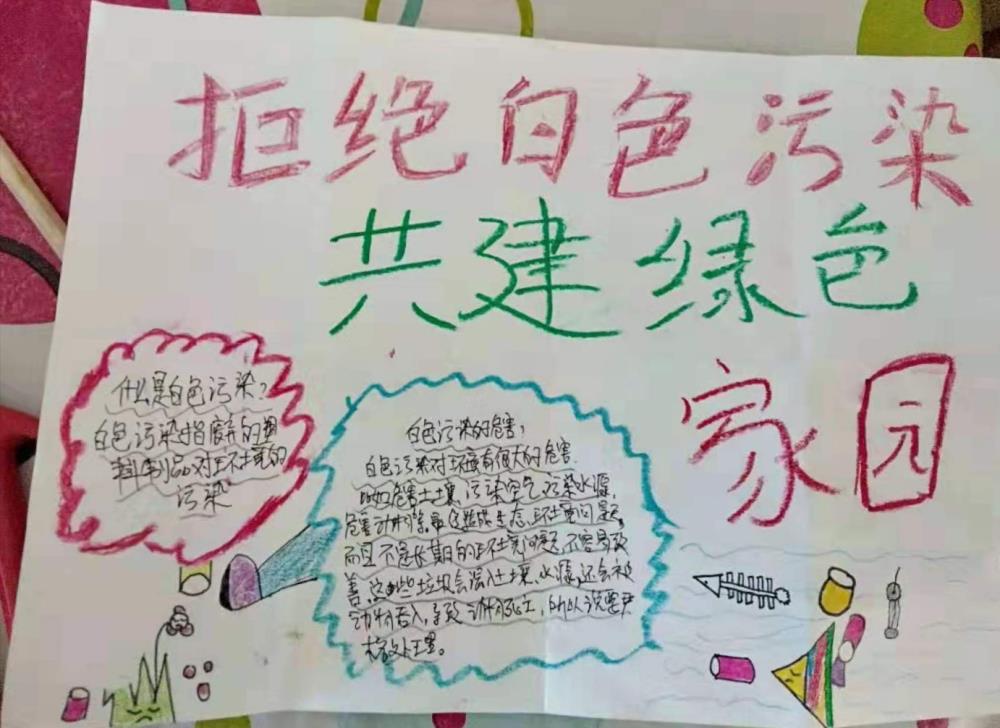 拒绝白色污染
共建绿色
家园
什么是白色污染?
白色污染指废弃的塑
料制品对环境的
污染
白色污染的危害:
白色污染对环境有很大的危害.
比如危害土壤,污染空气,污染水源,
危害动物,造成生态、环境问题,
而且不是长期的环境问题,不容易改
善,这些垃圾会混入土壤、水源,还会被
动物吞入,导致动物死亡,所以说要严
格处置。